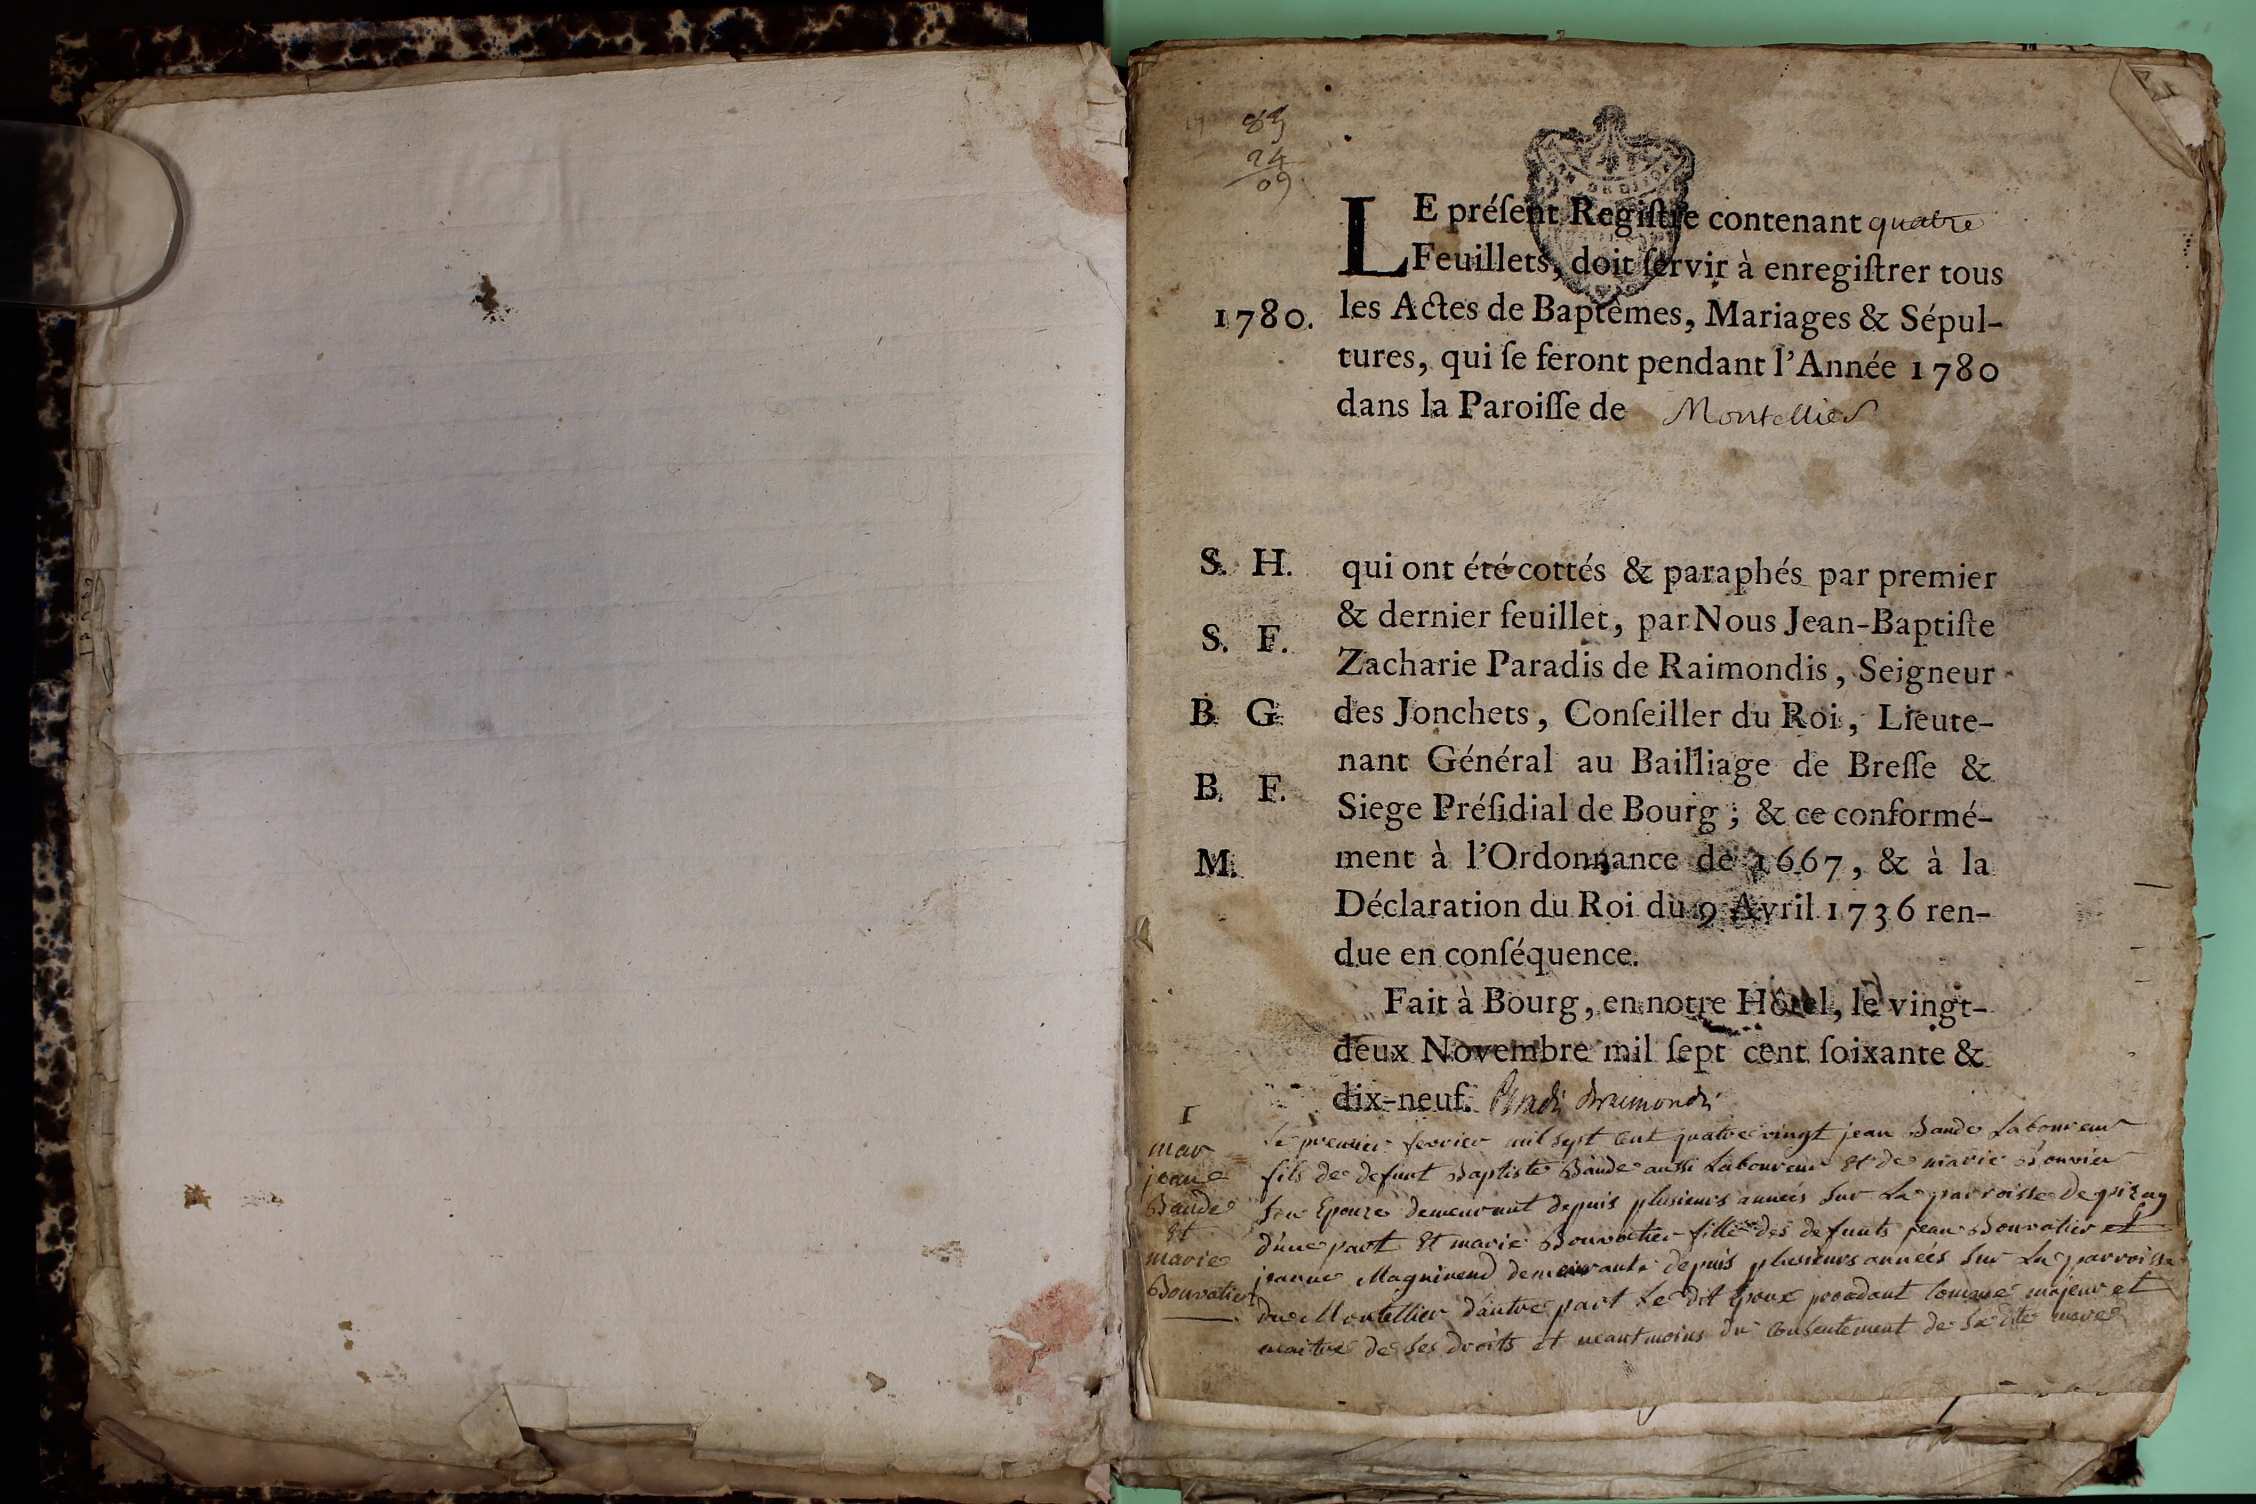 83
24
09
LE préſent Regiſtre contenant quatre
Feuillets, doit ſervir à enregiſtrer tous
1780. les Actes de Baptêmes, Mariages & Sépul-
tures, qui ſe feront pendant l'Année 1780
dans la Paroiſſe de Montellier
S. H. qui ont été cottés & paraphés par premier
& dernier feuillet, par Nous Jean-Baptiſte
S. F.
Zacharie Paradis de Raimondis, Seigneur
B. G. des Jonchets, Conſeiller du Roi, Lieute-
nant Général au Bailliage de Breſſe &
B. F.
Siege Préſidial de Bourg; & ce conformé-
M. ment à l'Ordonnance de 1667, & à la
Déclaration du Roi du 9 Avril 1736 ren-
due en conſéquence.
Fait à Bourg, en notre Hôtel, le vingt-
deux Novembre mil ſept cent ſoixante &
dix-neuf. Paradis Draimondis
1
mar
jean
Bande
et
marie
Bouvatier
Le premier fevrier mil sept cent quatre vingt jean Bande Laboureur
fils de defunt Baptiste Bande aussi Laboureur et de marie Bouvier
Son Epouze demeurant depuis plusieurs années Sur La parroisse de pizay
d'une part et marie Bouvatier fille des defunts jean Bouvatier et
jeanne Magninend demeurante depuis plusieurs années Sur La parroisse
du Montellier d'autre part Le dit Epoux procedant Comme majeur et
maitre de Ses droits et neantmoins du Consentement de Sa dite mere